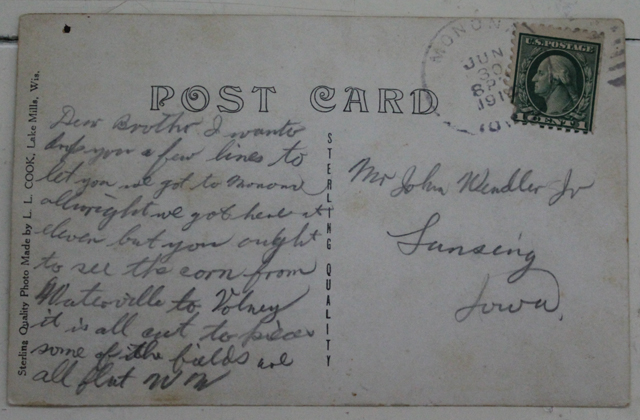 POST CARD
MONON
JUN
30
8
191
IOW
U.S. POSTAGE
Sterling Quality Photo Made by L. L. COOK, Lake Mills, Wis.
STERLING QUALITY
Dear Brother I wanto
drop you a few lines to
let you we got to Monona
allwright we got here at
eleven but you ought
to see the corn from
Waterville to Volney
it is all cut to pieces
some of the fields are
all flat W W
Mr John Wendler Jr
Lansing
Iowa.